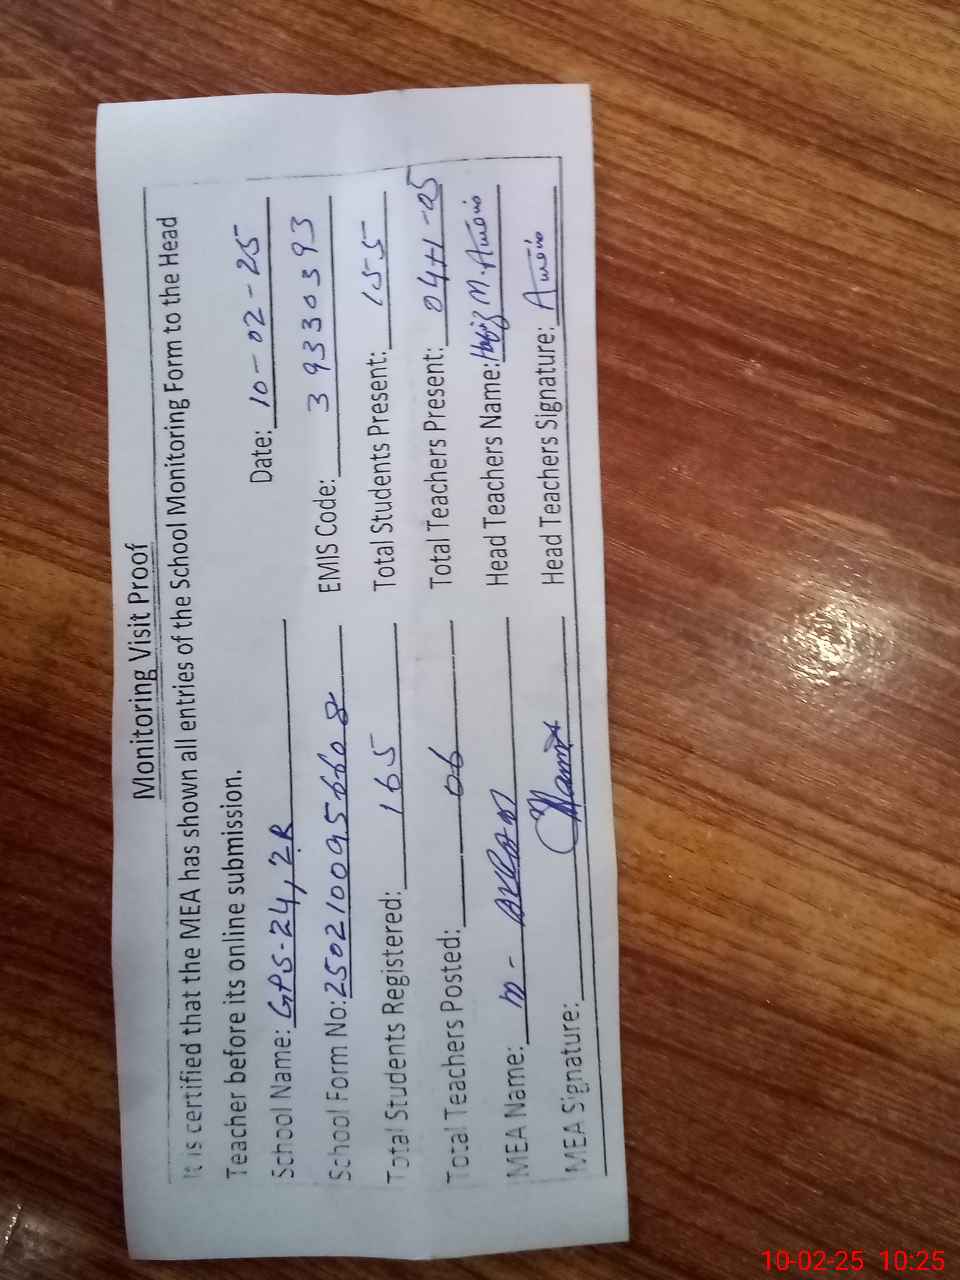 Monitoring Visit Proof
It is certified that the MEA has shown all entries of the School Monitoring Form to the Head
Teacher before its online submission.
School Name: GPS-24, 2R Date: 10-02-25
School Form No: 2502100956608 EMIS Code: 39330393
Total Students Registered: 165 Total Students Present: 155
Total Teachers Posted: 06 Total Teachers Present: 04+1-05
MEA Name: M- Akram Head Teachers Name: Hafiz M.
MEA Signature: Head Teachers Signature:
10-02-25 10:25